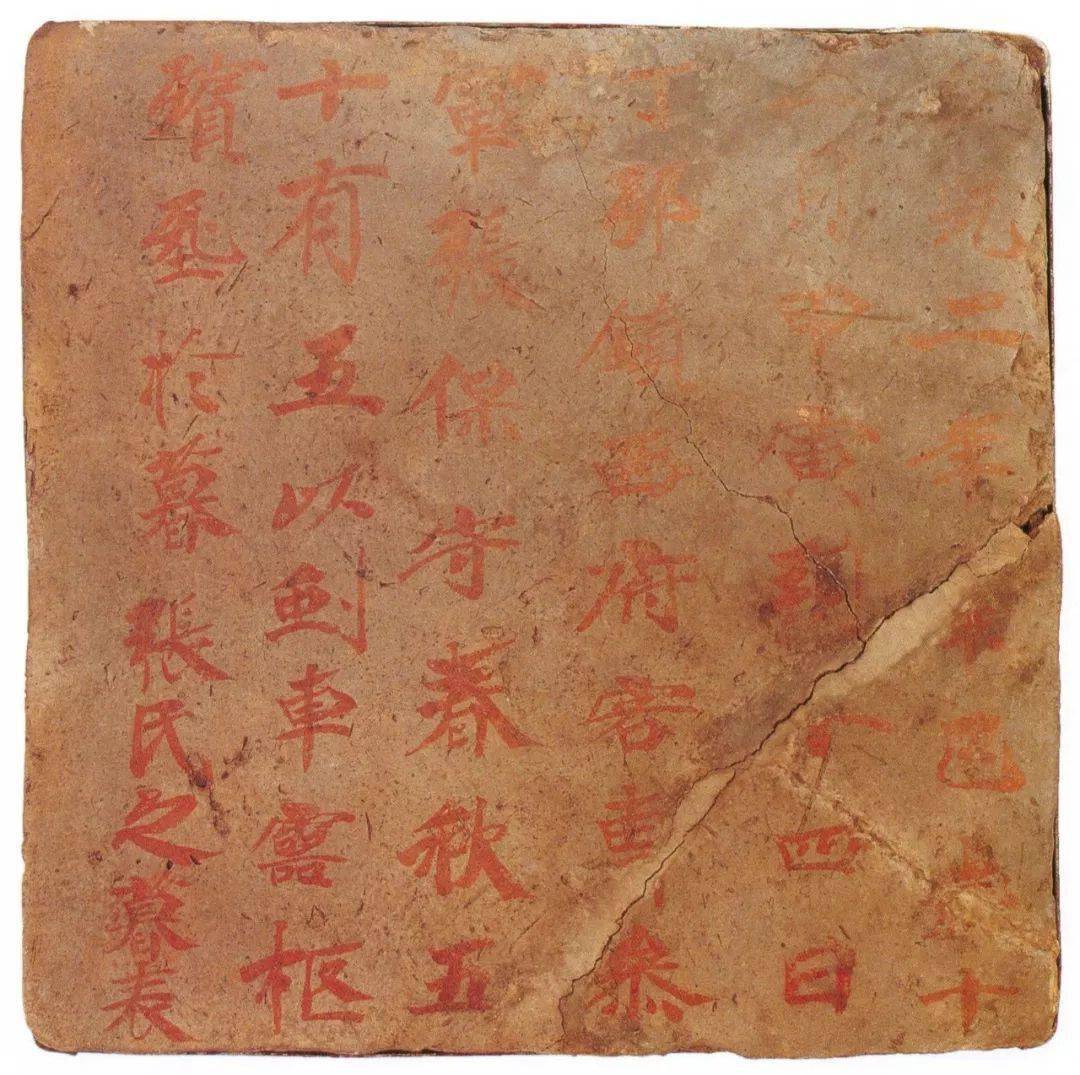 光二年辛巳歲十
一月甲寅朔十四日
丁卯鎮西府客曹參
軍張保守春秋五
十有五以劍車靈柩
殯埋於暮張氏之暮表